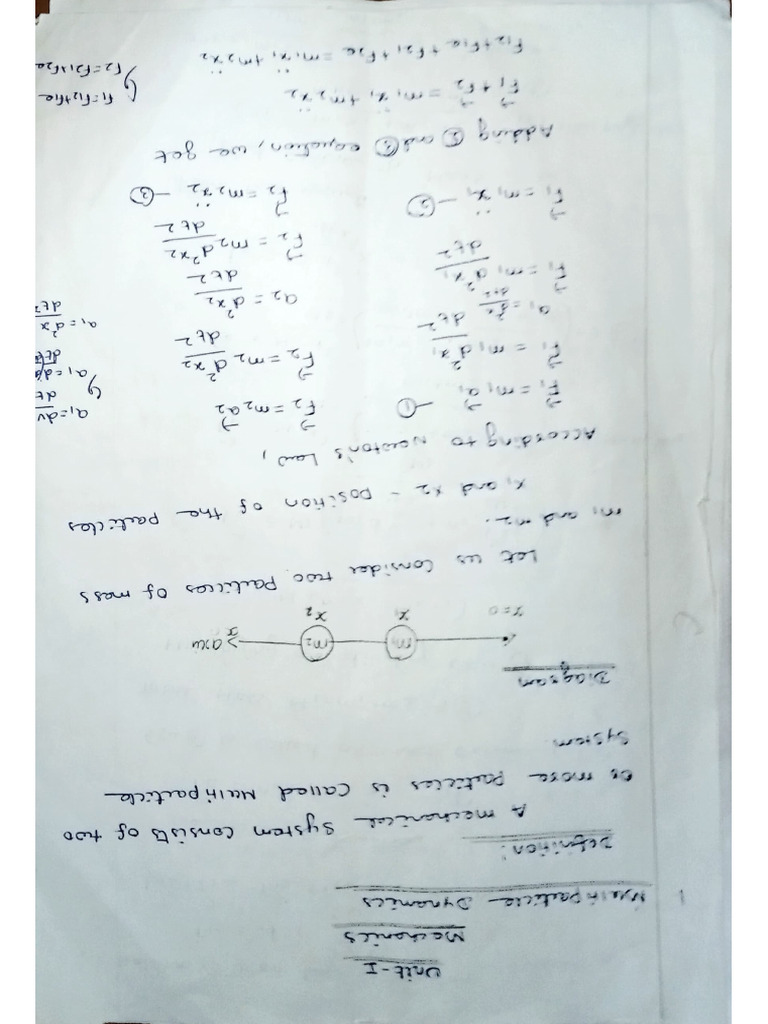 Unit-I
Mechanics
1 Multiparticle Dynamics
Definition:
A mechanical system consists of two
or more particles is called Multiparticle
system.
Diagram
m1 m2 > axis
x=0 x1 x2
Let us consider two particles of mass
m1 and m2.
x1 and x2 - position of the particles
According to Newton's Law,
F⃗1 = m1 a⃗1 — ① F⃗2 = m2 a⃗2
F⃗1 = m1 d²x1/dt² F⃗2 = m2 d²x2/dt²
a1 = d²x/dt² a2 = d²x2/dt²
F⃗1 = m1 d²x1/dt² F⃗2 = m2 d²x2/dt²
F⃗1 = m1 ẍ1 — ② F⃗2 = m2 ẍ2 — ③
Adding ② and ③ equation, we get
F⃗1 + F⃗2 = m1 ẍ1 + m2 ẍ2
F12 + F1e + F21 + F2e = m1 ẍ1 + m2 ẍ2
a1 = dv/dt
a1 = d²x/dt²
F1 = F12 + F1e
F2 = F21 + F2e